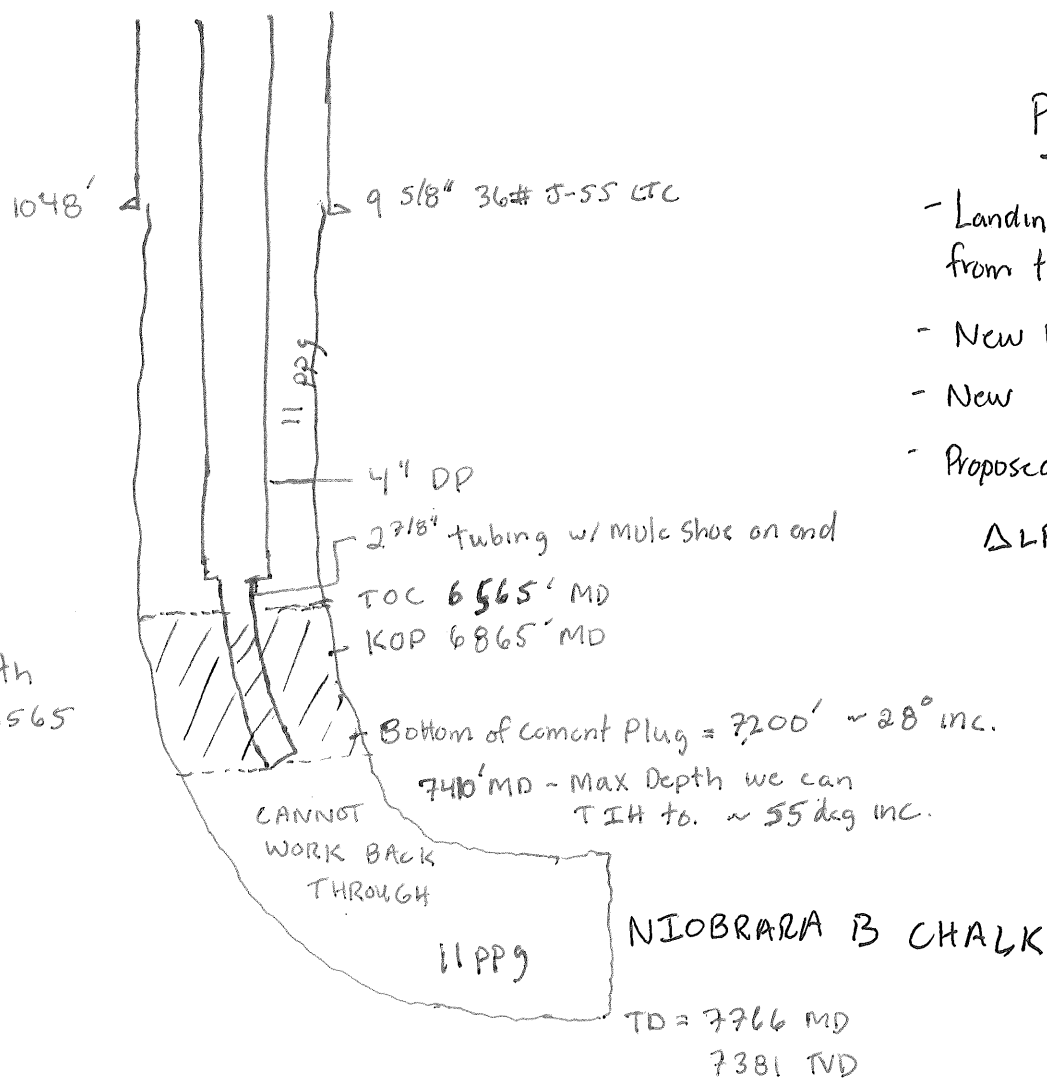 1048'
9 5/8" 36# J-55 LTC
11 ppg
4" DP
2 7/8" tubing w/ Mule Shoe on end
TOC 6565' MD
KOP 6865' MD
Bottom of Cement Plug = 7200' ~ 28° inc.
7410' MD - Max Depth we can
TIH to. ~ 55 deg inc.
CANNOT
WORK BACK
THROUGH
11 ppg
NIOBRARA B CHALK
TD = 7766 MD
7381 TVD
th
565
- Landin
from t
- New
- New
- Propose